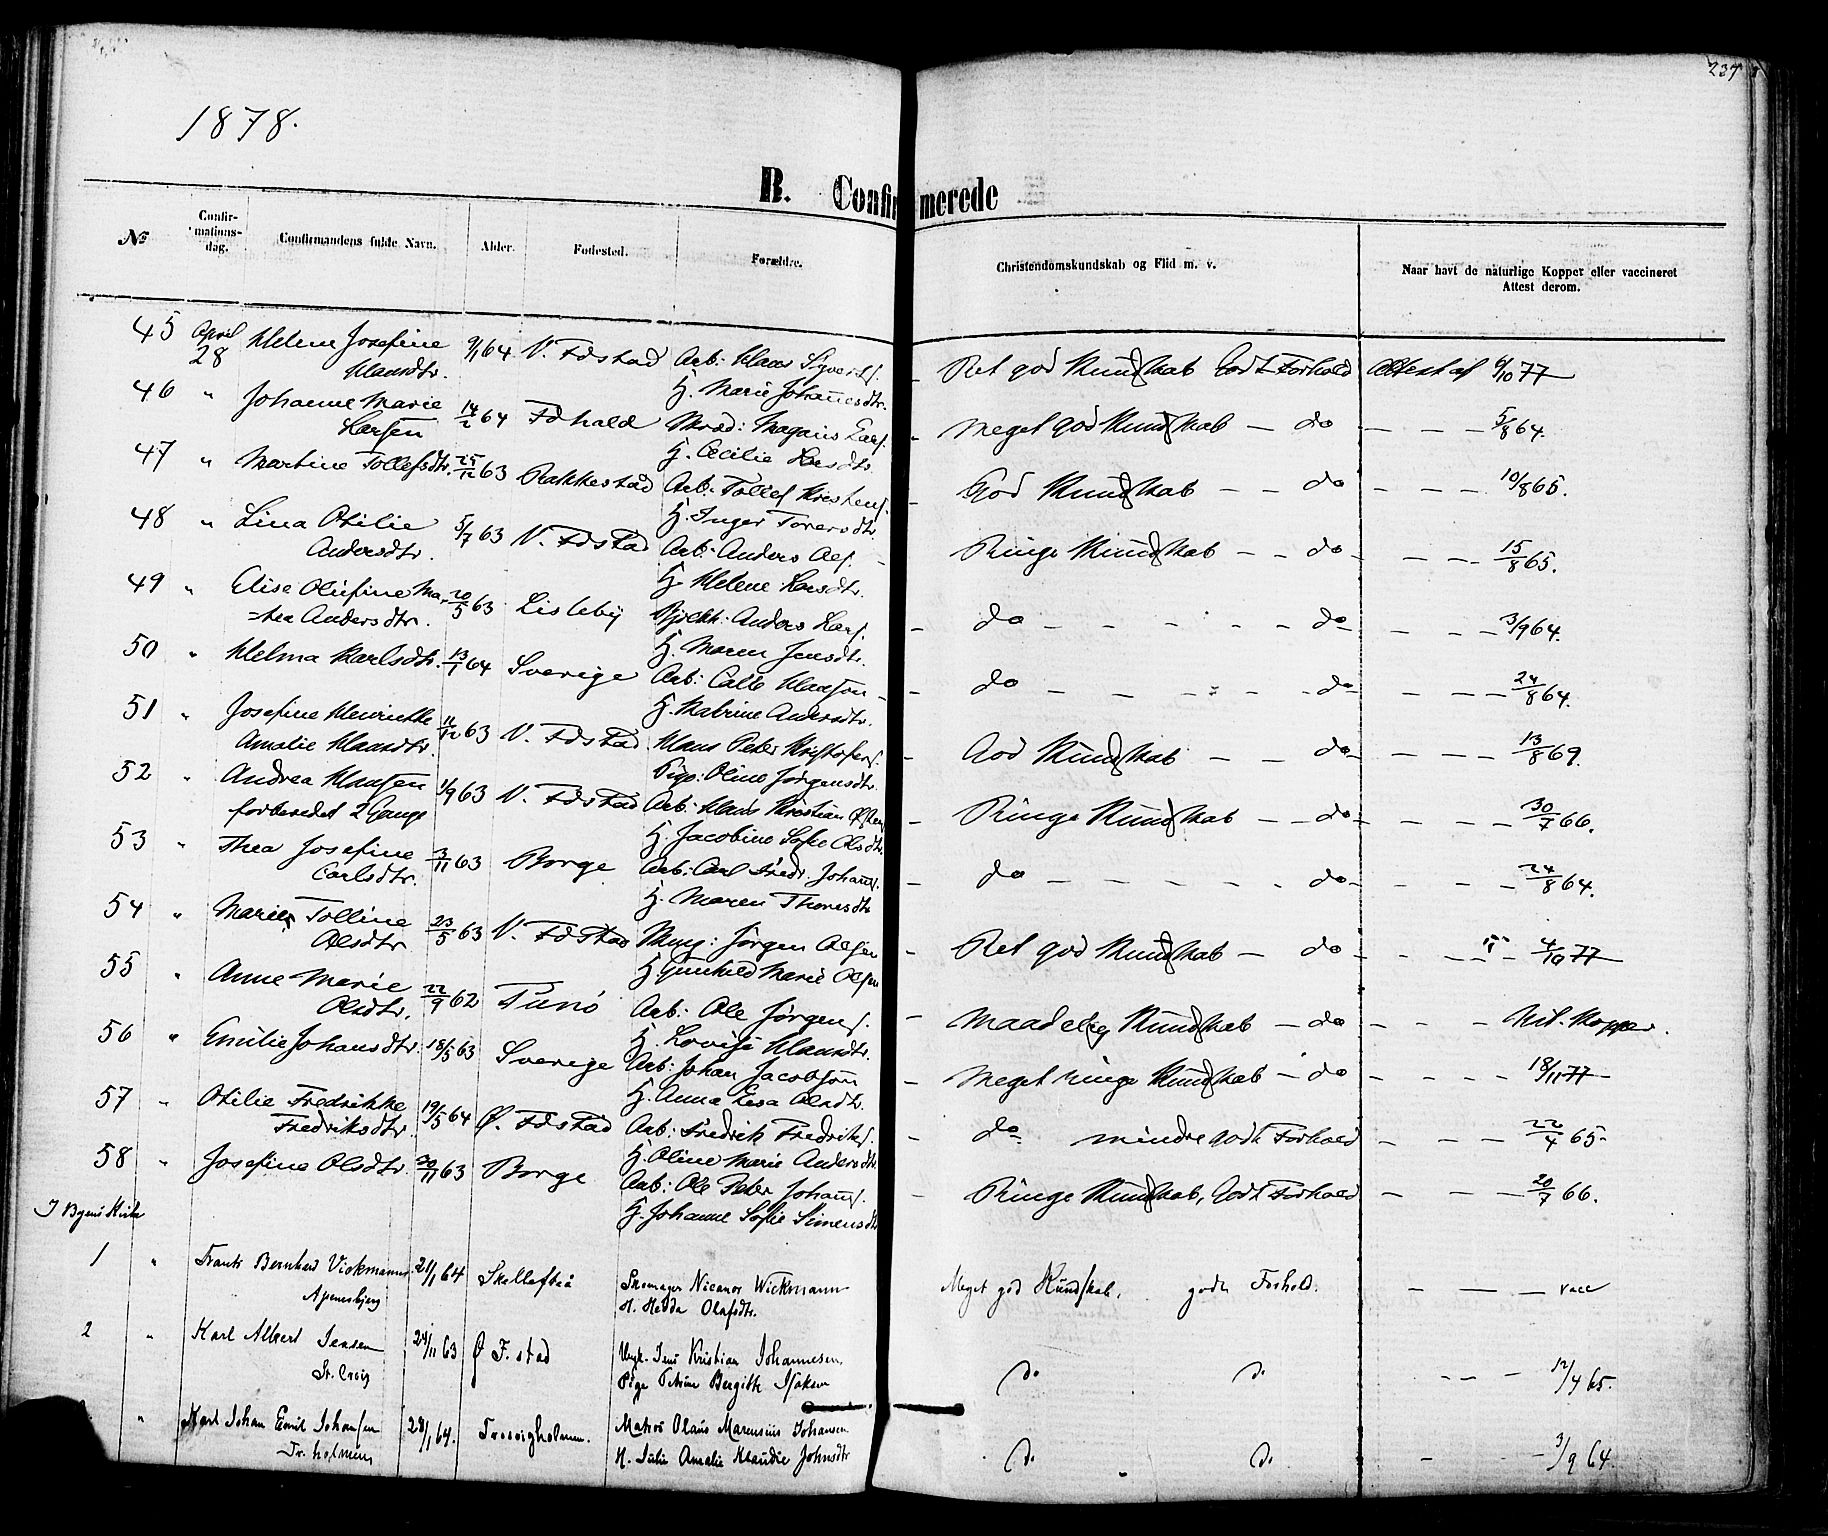 237
1878.
B. Confirmerede
No
Confirmationsdag.
Confirmandens fulde Navn.
Alder.
Fødested.
Forældre.
Christendomskundskab og Flid m. v.
Naar havt de naturlige Kopper eller vaccineret Attest derom.
45 April 28 Helene Josefine 9/1 64. V. Fdstad Arb: Klaus Syverts. Ret god Kundskab Godt Forhold Attest af 6/10 77
Klausdtr. H. Marie Johannesdtr.
46 " Johanne Marie 14/2 64 Fdhald Skræd: Magnus Lars. Meget god Kundskab — do — — — 5/8 64.
Larsen H. Cecilie Larsdtr.
47 " Martine Tollefsdtr. 25/12 63 Rakkestad Arb: Tollef Kristens. God Kundskab — — do — — — 10/8 65.
H. Inger Toversdtr.
48 " Lina Otilie 5/7 63 V. Fdstad Arb: Anders Ols. Ringe Kundskab — — do — — — 15/8 65.
Andersdtr. H. Helene Larsdtr.
49 " Elise Olufine Ma- 20/5 63 Lisleby Anders Lars. do — — — — — do — — — 3/9 64.
thea Andersdtr. H. Maren Jensdtr.
50 " Helma Karlsdtr. 13/1 64 Sverige Arb: Calle Klausson do — — — — — do — — — 24/8 64.
H. Katrine Andersdtr.
51 " Josefine Henriette 11/12 63 V. Fdstad Klaus Peter Kristofers. God Kundskab — — do — — — 13/8 69.
Amalie Klausdtr. Pige: Oline Jørgensdtr.
52 " Andrea Klausen 1/9 63 V. Fdstad Arb: Klaus Kristian Ringe Kundskab — — do — — — 30/7 66.
forberedet 2 Gange H. Jacobine Sofie Olsdtr.
53 " Thea Josefine 3/11 63 Borge Arb: Carl Fredr. Johans. do — — — — — do — — — 24/8 64.
Carlsdtr. H. Maren Thoresdtr
54 " Marie Tolline 23/5 63 V. Fdstad Jørgen Olsen Ret god Kundskab — do — — — " 4/10 77
Olsdtr H. Gunhild Marie Olsen
55 " Anne Marie 22/9 62 Tunø Arb: Ole Jørgens. Maadelig Kundskab — do — — — Nat. Kopper.
Olsdtr. H. Lovise Klausdtr.
56 " Emilie Johansdtr. 18/5 63 Sverige Arb: Johan Jacobson Meget ringe Kundskab — do — — — 18/11 77
H. Anna Lisa Olsdtr.
57 " Otilie Fredrikke 19/5 64 Ø. Fdstad Arb: Fredrik Fredriks. do mindre godt Forhold — — — 22/4 65.
Fredriksdtr. H. Oline Marie Andersdtr.
58 " Josefine Olsdtr. 20/11 63 Borge Arb: Ole Peter Johans. Ringe Kundskab, Godt Forhold — — — 20/7 66.
H. Johanne Sofie Simensdtr
I Byens Kirke
1 " Frants Bernhard Vickmann 21/1 64 Skellefteå Skomager Nicanor Wickmann Meget god Kundskab, godt Forhold. — — — vacc
Apenesbjerg H. Hedda Olafsdtr.
2 " Karl Albert Jensen 24/11 63 Ø F.stad Ungk. Jens Kristian Johannesen, do do — — — 12/4 65.
St. Croix Pige Petrine Bergitte Isaksen
" Karl Johan Emil Johansen 28/1 64. Trosvigholmen. Matros Olaus Marensius Johansen do do — — 3/9 64.
Tr. holmen H. Julie Amalie Klaudie Johnsdtr